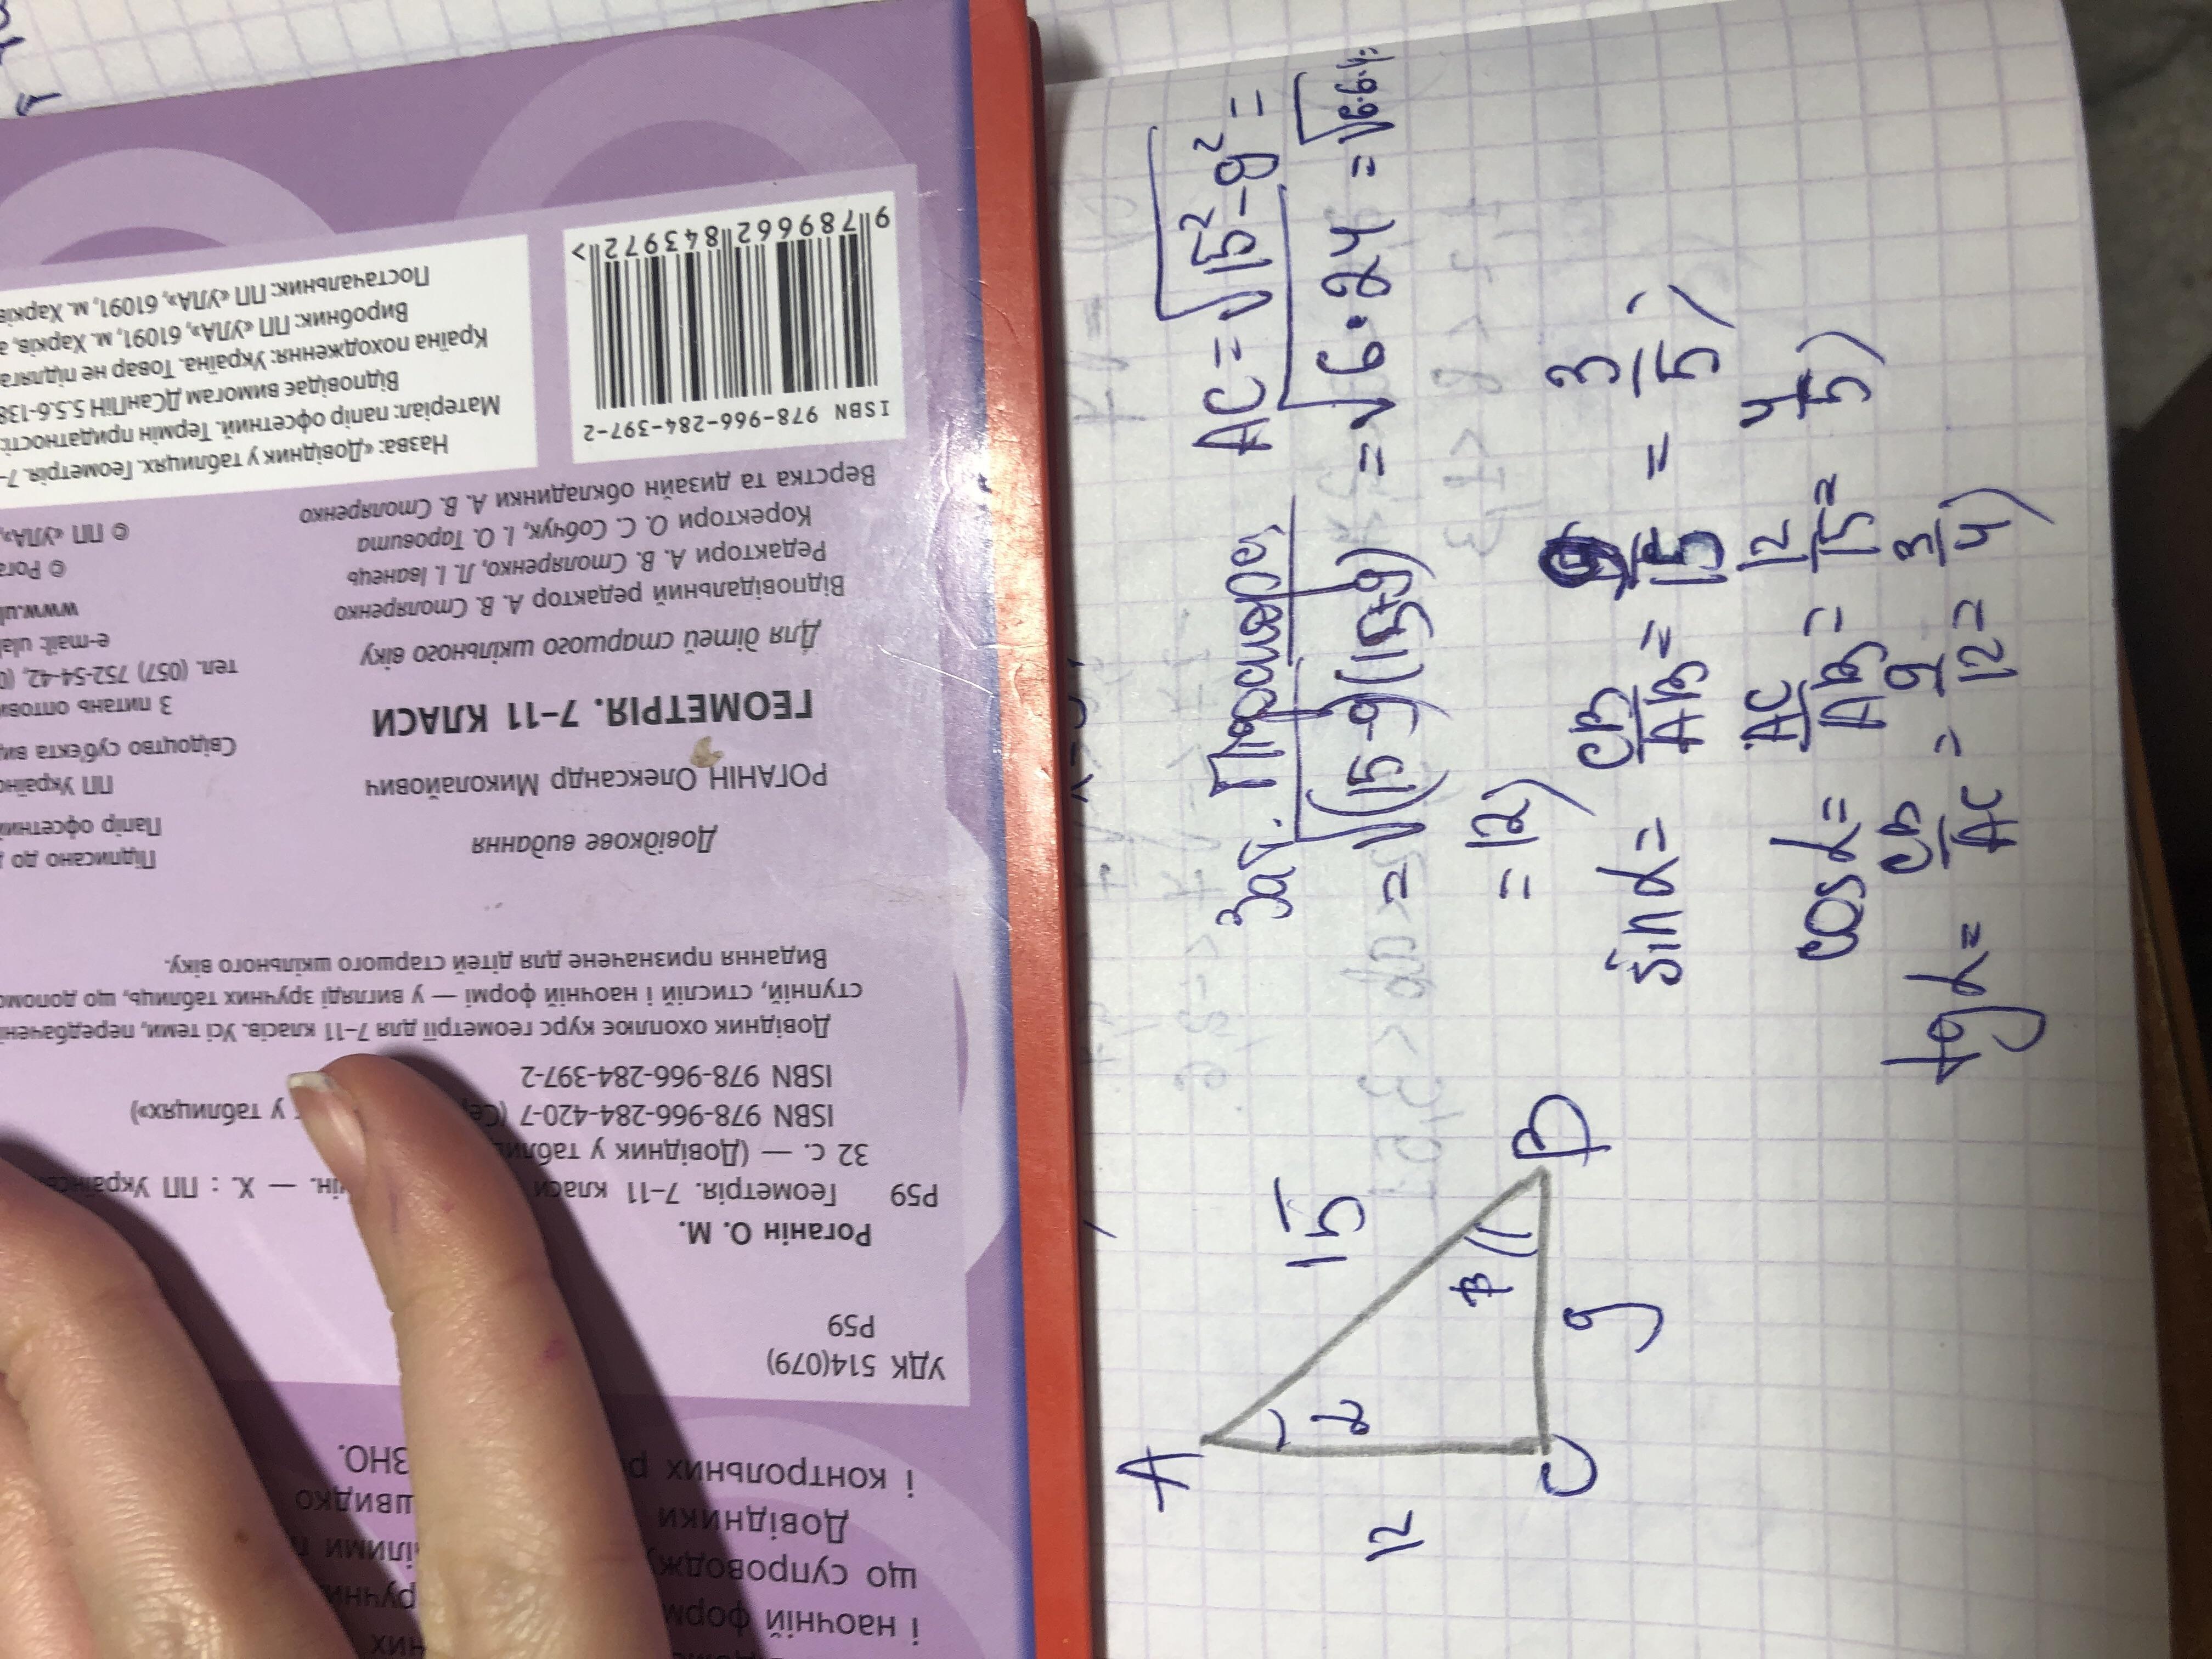 і наочній форм
що супроводж
Довідники
швидко
і контрольних р
ЗНО.
УДК 514(079)
Р59
Роганін О. М.
Р59 Геометрія. 7–11 класи
32 с. — (Довідник у таблиц
ISBN 978-966-284-420-7
у таблицях»)
ISBN 978-966-284-397-2
Довідник охоплює курс геометрії для 7–11 класів. Усі теми, передбачен
ступній, стислій і наочній формі — у вигляді зручних таблиць, що допомо
Видання призначене для дітей старшого шкільного віку.
Довідкове видання
РОГАНІН Олександр Миколайович
ГЕОМЕТРІЯ. 7–11 КЛАСИ
Для дітей старшого шкільного віку
Відповідальний редактор А. В. Столяренко
Редактори А. В. Столяренко, Л. І. Іванець
Коректори О. С. Собчук, І. О. Таровита
Верстка та дизайн обкладинки А. В. Столяренко
Підписано до
Папір офсетний
ПП Україн
Свідоцтво суб'єкта вид
З питань оптови
тел. (057) 752-54-42, (0
e-mail: ula
www.ul
© Рога
© ПП «УЛА»,
Назва: «Довідник у таблицях. Геометрія. 7–
Матеріал: папір офсетний. Термін придатності:
Відповідає вимогам ДСанПіН 5.5.6-138
Країна походження: Україна. Товар не підляга
Виробник: ПП «УЛА», 61091, м. Харків, а
Постачальник: ПП «УЛА», 61091, м. Харків
ISBN 978-966-284-397-2
9 789662 843972 >
A
12
α
15
β
C
9
B
За т. Піфагора, AC = √15² − 9² =
= √(15−9)(15+9) = √6·24 = √6·6·4 =
= 12)
sin α = CB/AB = 9/15 = 3/5)
cos α = AC/AB = 12/15 = 4/5)
tg α = CB/AC = 9/12 = 3/4)